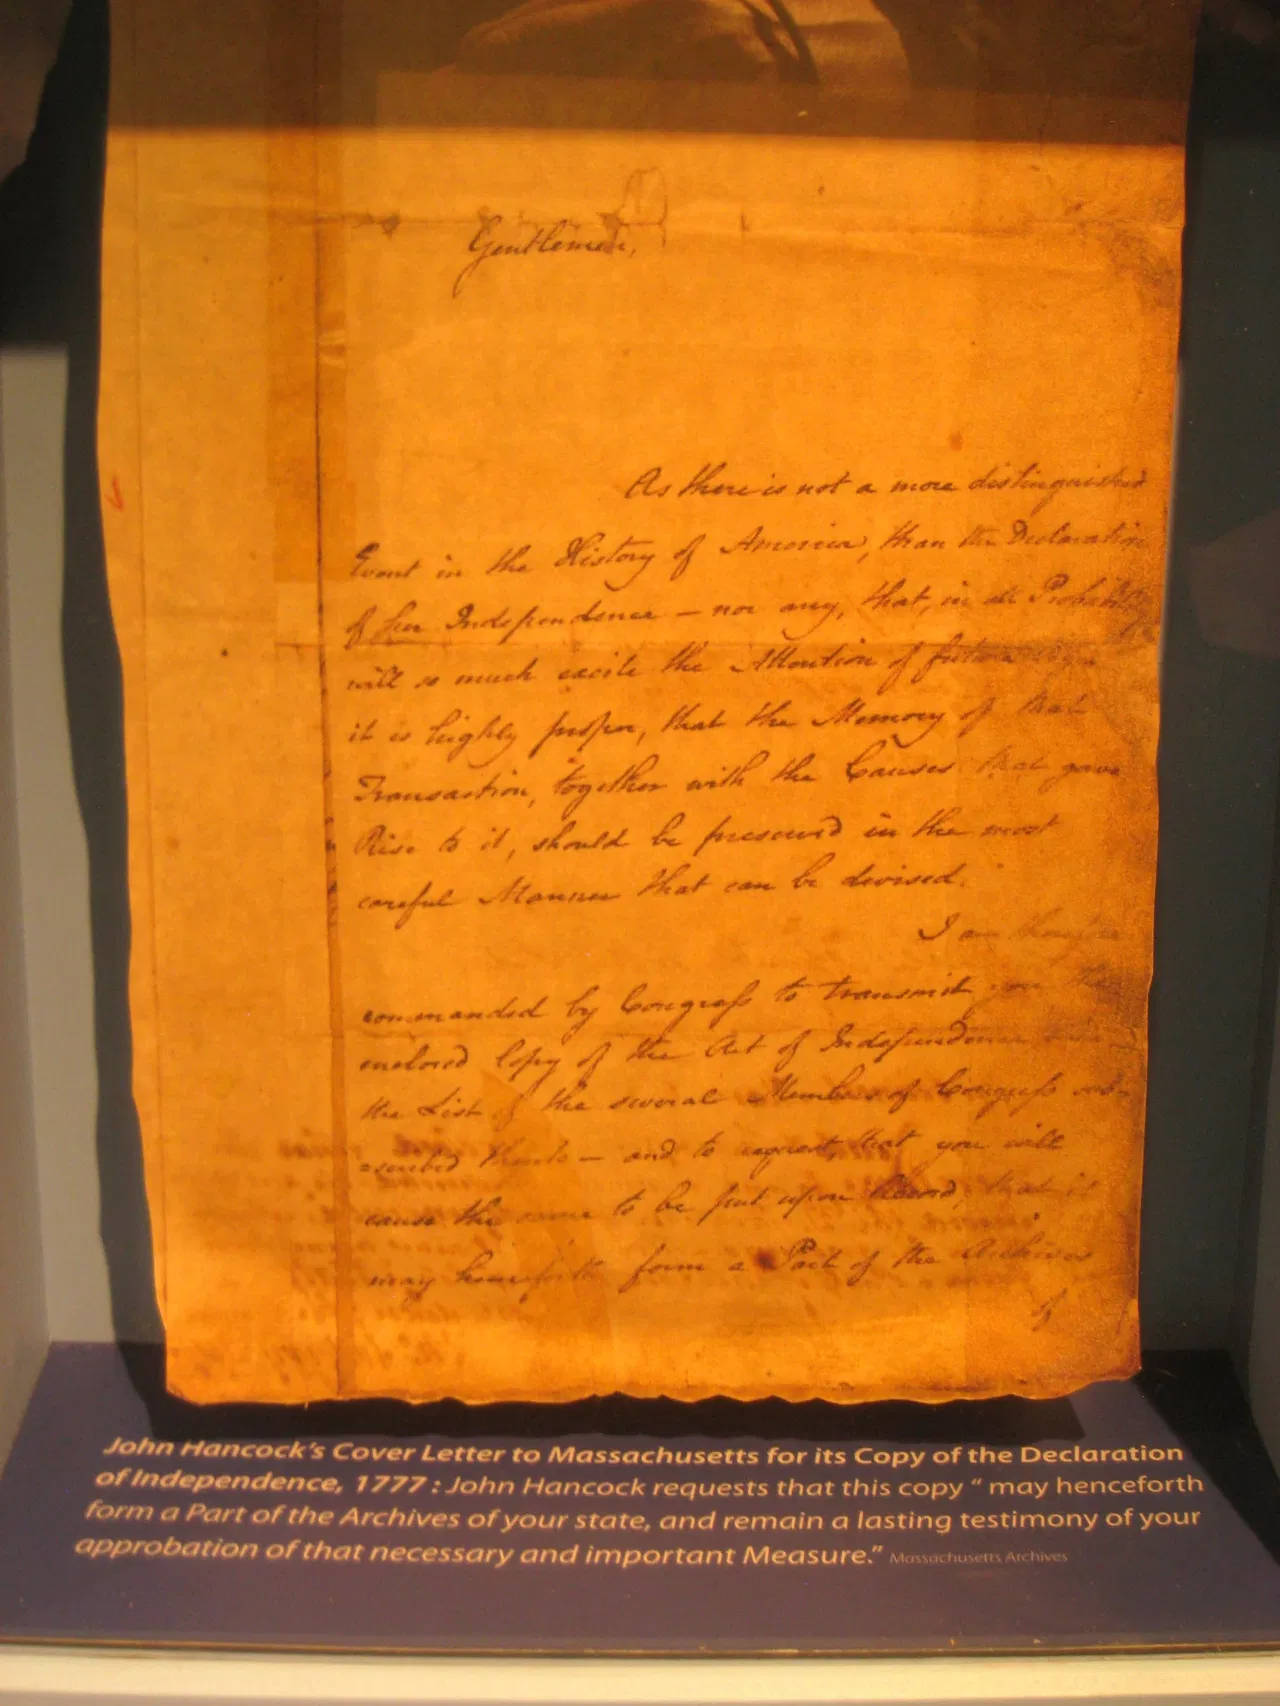 Gentlemen,
As there is not a more distinguished
Event in the History of America, than the Declaration
of her Independence – nor any, that, in all Probability
will so much excite the Attention of future Ages
it is highly proper, that the Memory of that
Transaction, together with the Causes that gave
Rise to it, should be preserved in the most
careful Manner that can be devised.
I am therefore
commanded by Congress to transmit you the
enclosed Copy of the Act of Independence with
the List of the several Members of Congress sub-
scribed thereto – and to request, that you will
cause the same to be put upon Record, that it
may henceforth form a Part of the Archives
of
John Hancock's Cover Letter to Massachusetts for its Copy of the Declaration
of Independence, 1777 : John Hancock requests that this copy “ may henceforth
form a Part of the Archives of your state, and remain a lasting testimony of your
approbation of that necessary and important Measure.” Massachusetts Archives